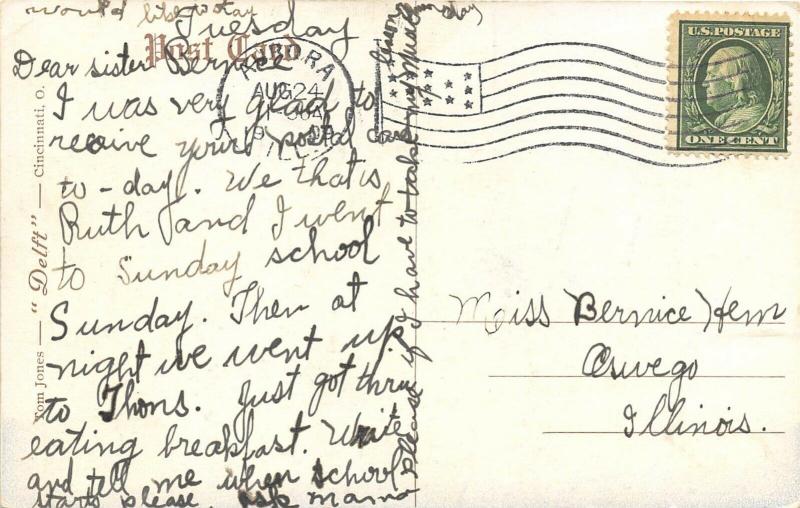 would like to stay
Tuesday
Post Card
Dear sister Bernice
I was very glad to
receive your postal card
to-day. We that is
Ruth and I went
to Sunday school
Sunday. Then at
night we went up
to Thons. Just got thru
eating breakfast. Write
and tell me when school
starts please. Ask mama
please if I have to take my music
Tom Jones — "Delft" — Cincinnati, O.
AURORA
AUG 24
ILL.
U.S. POSTAGE
ONE CENT
Miss Bernice Hem
Oswego
Illinois.